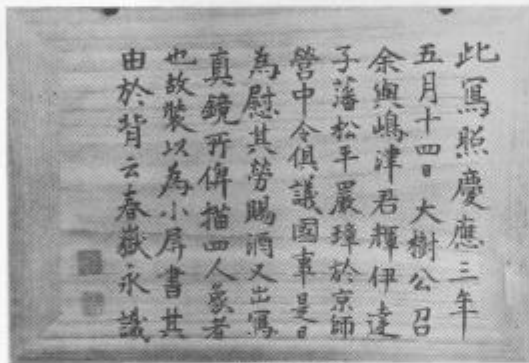 此寫照慶應三年
五月十四日大樹公召
余與嶋津君輝伊達
子藩松平嚴璋於京師
營中令俱議國事是日
為慰其勞賜酒又出寫
真鏡所俾描四人象者
也故裝以為小屏書其
由於背云春嶽永識